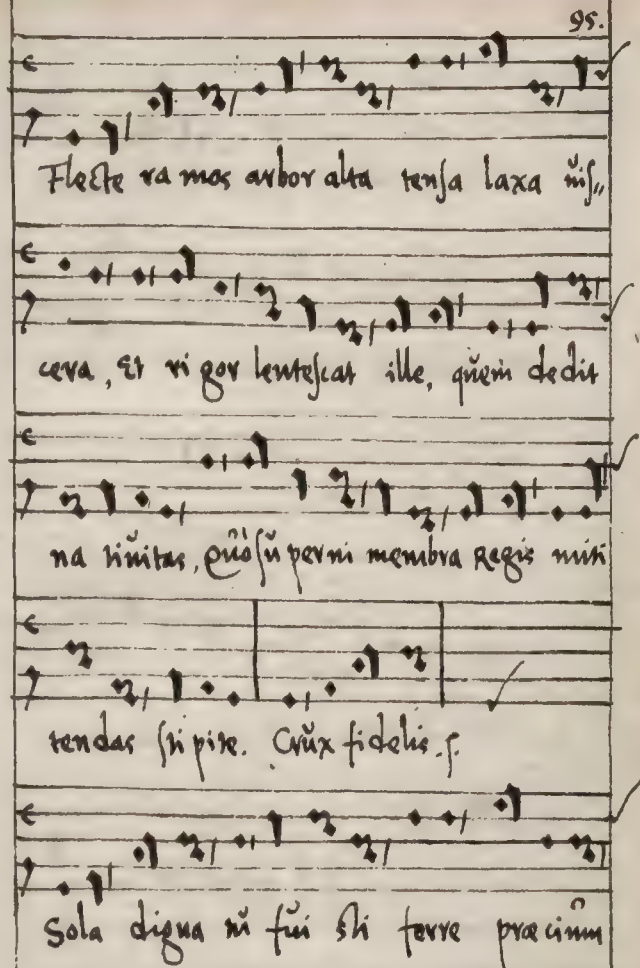 95.
Flecte ra mos arbor alta tensa laxa vis„
cera, Et ri gor lentescat ille, quem dedit
na tivitas, Quo su perni membra Regis miti
tendas sti pite. Crux fidelis. s.
Sola digna tu fui sti ferre præcium